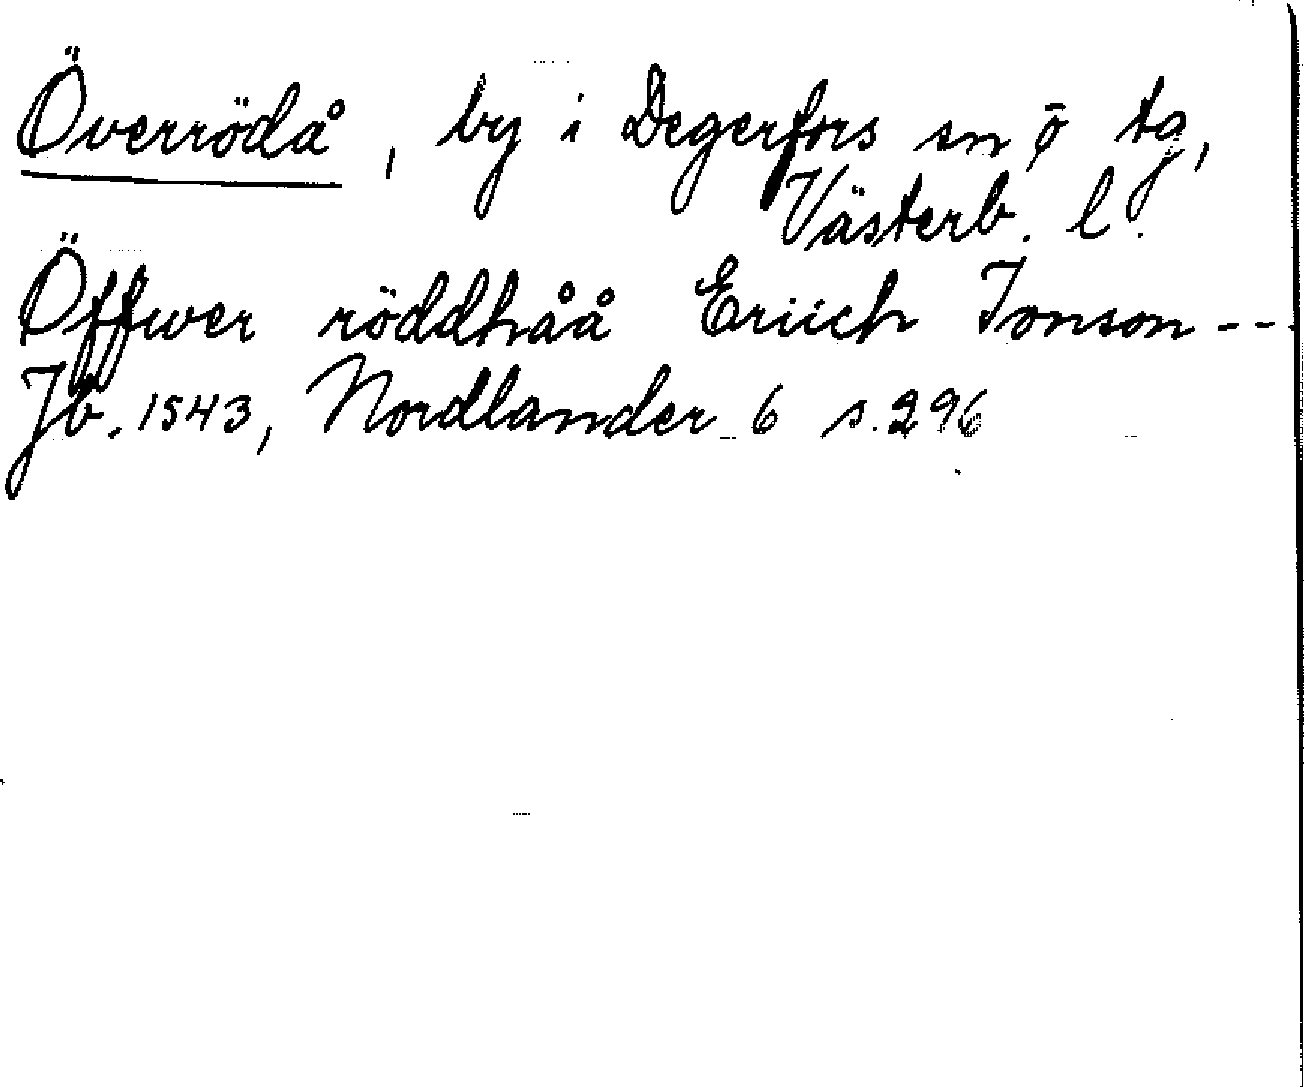 Överrödå, by i Degerfors sn, o tg,
Västerb. l.
Öffwer röddhåå Eriich Jonson ---
Jb. 1543, Nordlander 6 s. 296